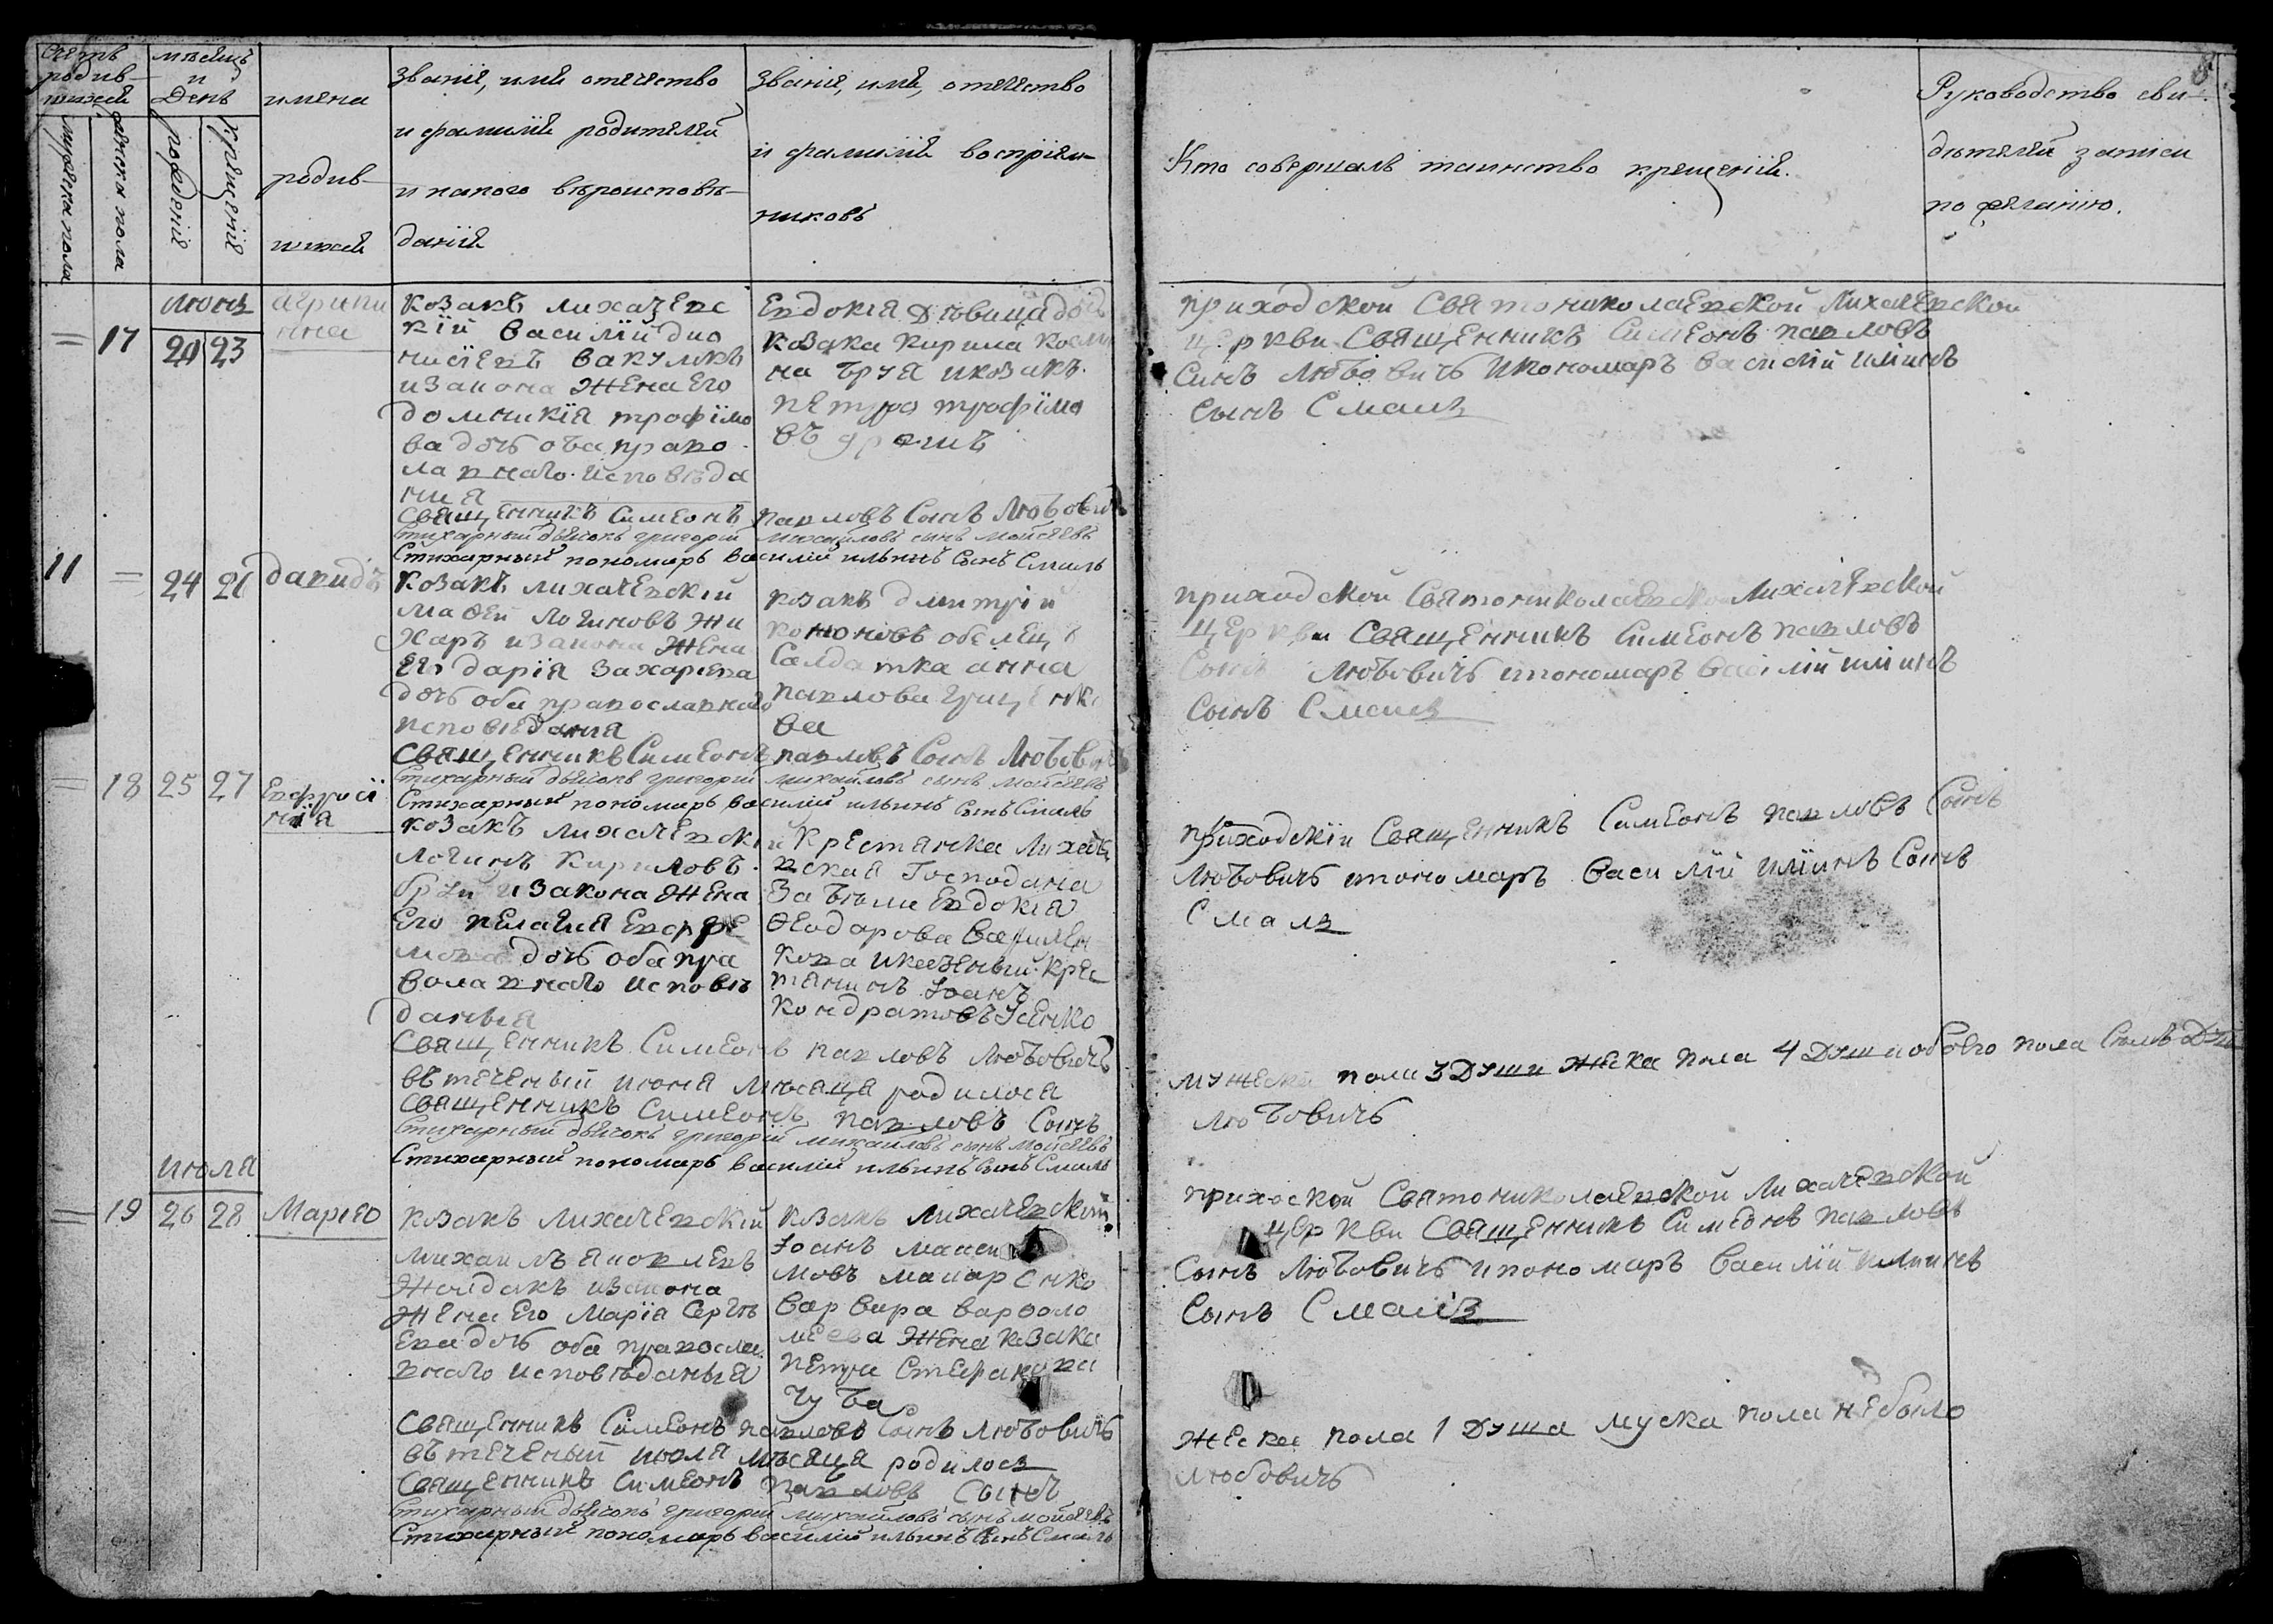 Счетъ родив-шихся
мужеска пола
женска пола
мѣсяцъ и День
рожденія
крещенія
имена
родив-
шихся
Званіе, имя отечество
и фамилія родителей
и какого вѣроисповѣ-
данія
Званіе, имя, отечество
и фамилія воспріем-
никовъ
Кто совершалъ таинство крещенія.
Руководство сви-
дѣтелей записи
по желанію.
июня
= 17 20 23
агрипи
нна
козакъ лихачевс
кїй Василїй дио
нисїевъ Вакулкъ
изакона жена его
домникїя трофїмо
ва дочь оба право
лавнаго исповѣда
ния
Евдокія дѣвица дочь
козака Кирила
козакъ
петро трофїмо
въ
приходской Святониколаевской Лихачевской
церкви Священникъ Симеонъ павловъ
Синъ Любовичъ ипономаръ Василїй илїинъ
сынъ Смаль
Священникъ Симеонъ павловъ Сынъ Любовичъ
Стихарный дьячокъ григорій михайловъ сынъ мойсеевъ
Стихарный пономарь василій ильинъ Сынъ Смаль
11 = 24 26 давидъ
Козакъ лихачевскїй
маѳей Логиновъ Жи
харъ изакона Жена
Его дарїя Захарїева
дочь оба православнаго
исповѣдания
козакъ дмитрїй
кононовъ
Салдатка анна
павлова грищенко
ва
приходской Святониколаевской Лихачевской
церкви Священникъ Симеонъ павловъ
Сынъ Любовичъ ипономаръ Василїй илїинъ
Сынъ Смаль
Священникъ Симеонъ павловъ Сынъ Любовичъ
Стихарный дьячокъ григорій михайловъ сынъ мойсеевъ
Стихарный пономарь василій ильинъ сынъ Смаль
= 18 25 27
Евфросї
нїя
козакъ лихачевскій
Логинъ Кириловъ
изакона Жена
Его пелагия
дочь оба пра
вославнаго исповѣ
данья
Крестянка Лихаче
вская Господина
Евдокія
Ѳеодорова Василен
кова иказеный Крес
тянинъ Іоанъ
Кондратовъ Усенко
приходскїй Священникъ Симеонъ павловъ Сынъ
Любовичъ ипономаръ Василїй илїинъ Сынъ
Смаль
Священникъ Симеонъ павловъ Любовичъ
въ теченый июня мѣсяца родилося
мужеска пола 3 Души Жеска пола 4 Души обоего пола Сѣмъ Душ
Священникъ Симеонъ павловъ Сынъ
Любовичъ
Стихарный дьячокъ григорій михайловъ сынъ мойсеевъ
Стихарный пономарь василій ильинъ Сынъ Смаль
июля
= 19 26 28 Марію
козакъ лихачевскїй
михаилъ яковлевъ
Жолдакъ изакона
Жена Его Марїя Сергѣ
Ева дочь оба правосла
внаго исповѣданья
козакъ лихачевской
Іоанъ
мовъ макаренко
Варвара варѳоло
меева Жена козака
петра Стефанова
приходской Святониколаевской Лихачевской
церкви Священникъ Симеонъ павловъ
Сынъ Любовичъ ипономаръ Василїй илїинъ
Сынъ Смаль
Священникъ Симеонъ павловъ Сынъ Любовичъ
въ теченый июля мѣсяца родилося
Жеска пола 1 Душа муска пола небыло
Священникъ Симеонъ павловъ Сынъ
Любовичъ
Стихарный дьячокъ григорій михайловъ сынъ мойсеевъ
Стихарный пономарь василій ильинъ Сынъ Смаль